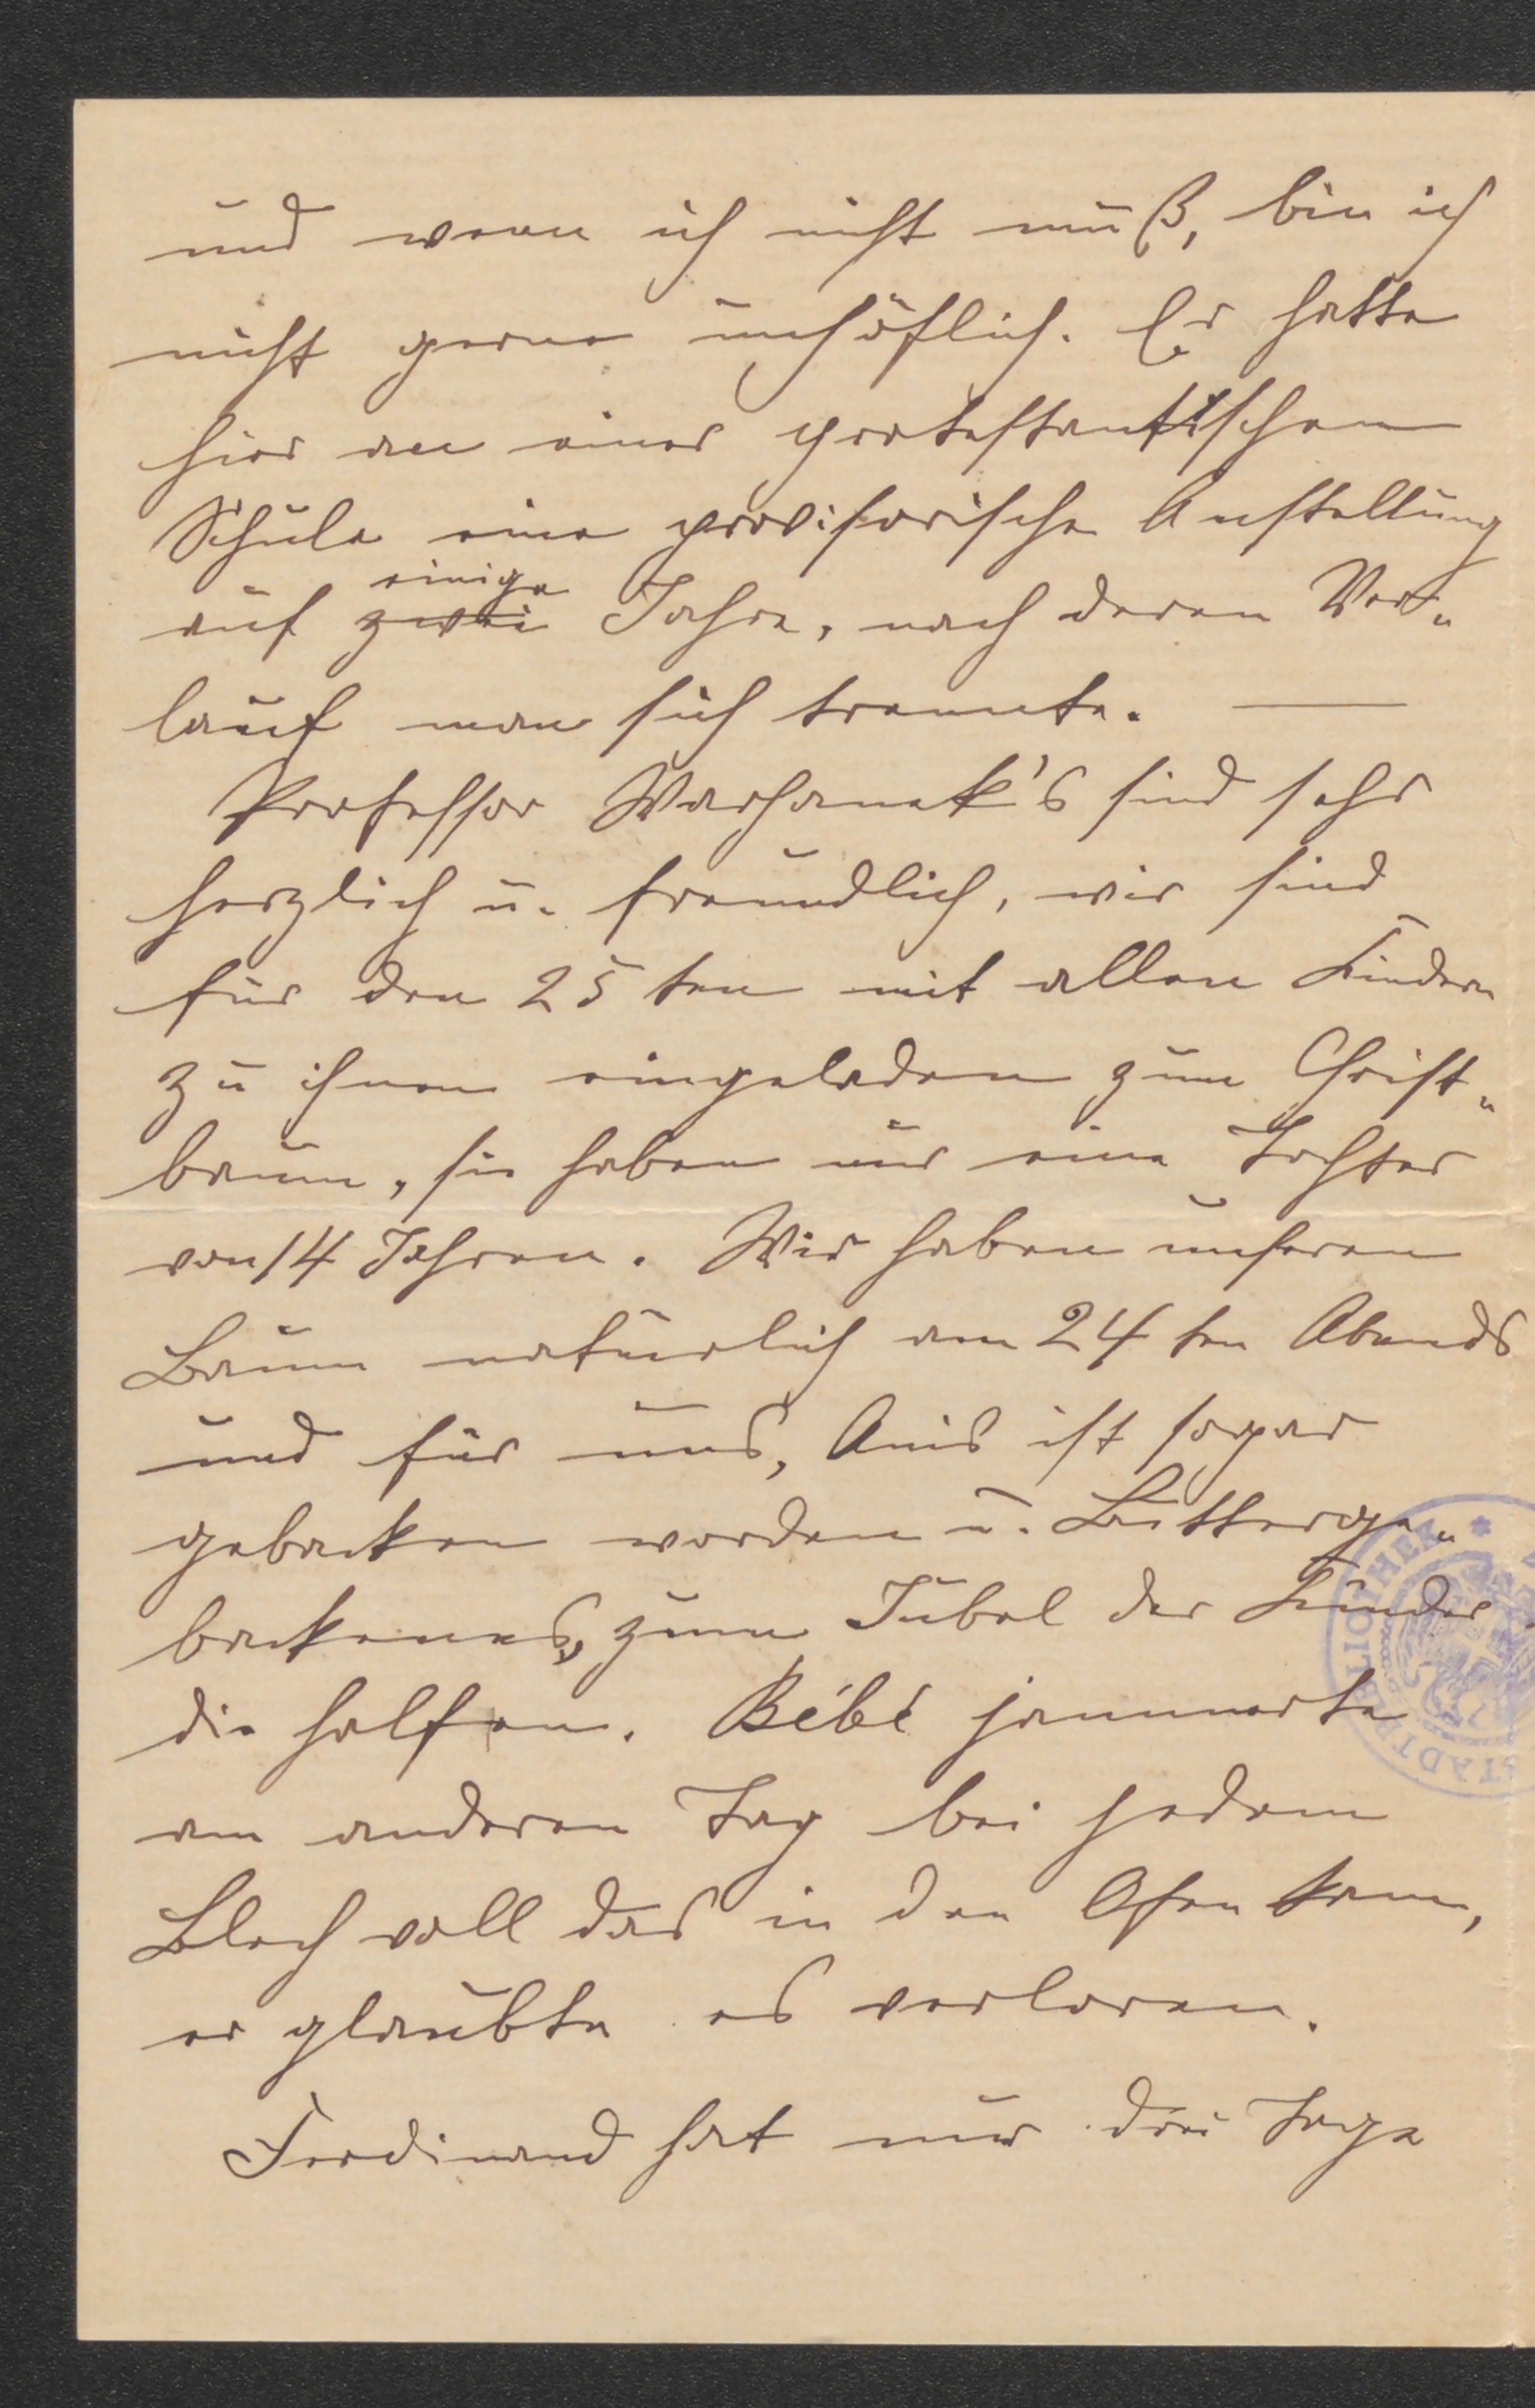 und wenn ich nicht muß, bin ich
nicht gerne unhöflich. Er hatte
hier an einer protestantischen
Schule eine provisorische Anstellung
einige
auf zwei Jahre, nach deren Ver„
lauf man sich trennte. —
Professor Warhanek's sind sehr
herzlich u. freundlich, wir sind
für den 25ten mit allen Kindern
zu ihnen eingeladen zum Christ„
baum, sie haben nur eine Tochter
von 14 Jahren. Wir haben unseren
Baum natürlich am 24ten Abends
und für uns, Anis ist sogar
gebacken worden u. Butterge„
backenes, zum Jubel der Kinder
die halfen. Bébé jammerte
am anderen Tag bei jedem
Blech voll das in den Ofen kam,
er glaubte es verloren.
Ferdinand hat nur drei Tage